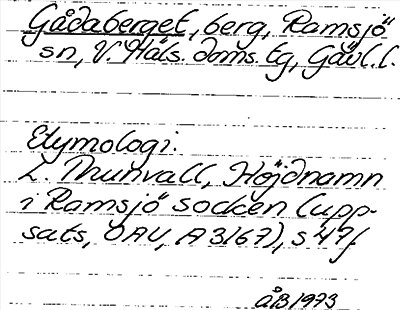 Gådaberget, berg, Ramsjö
sn, V. Häls. doms. tg, Gävl. l.
Etymologi.
L. Thunvall, Höjdnamn
i Ramsjö socken (upp-
sats, OAU, A 3167), s 47f.
ÅB 1973